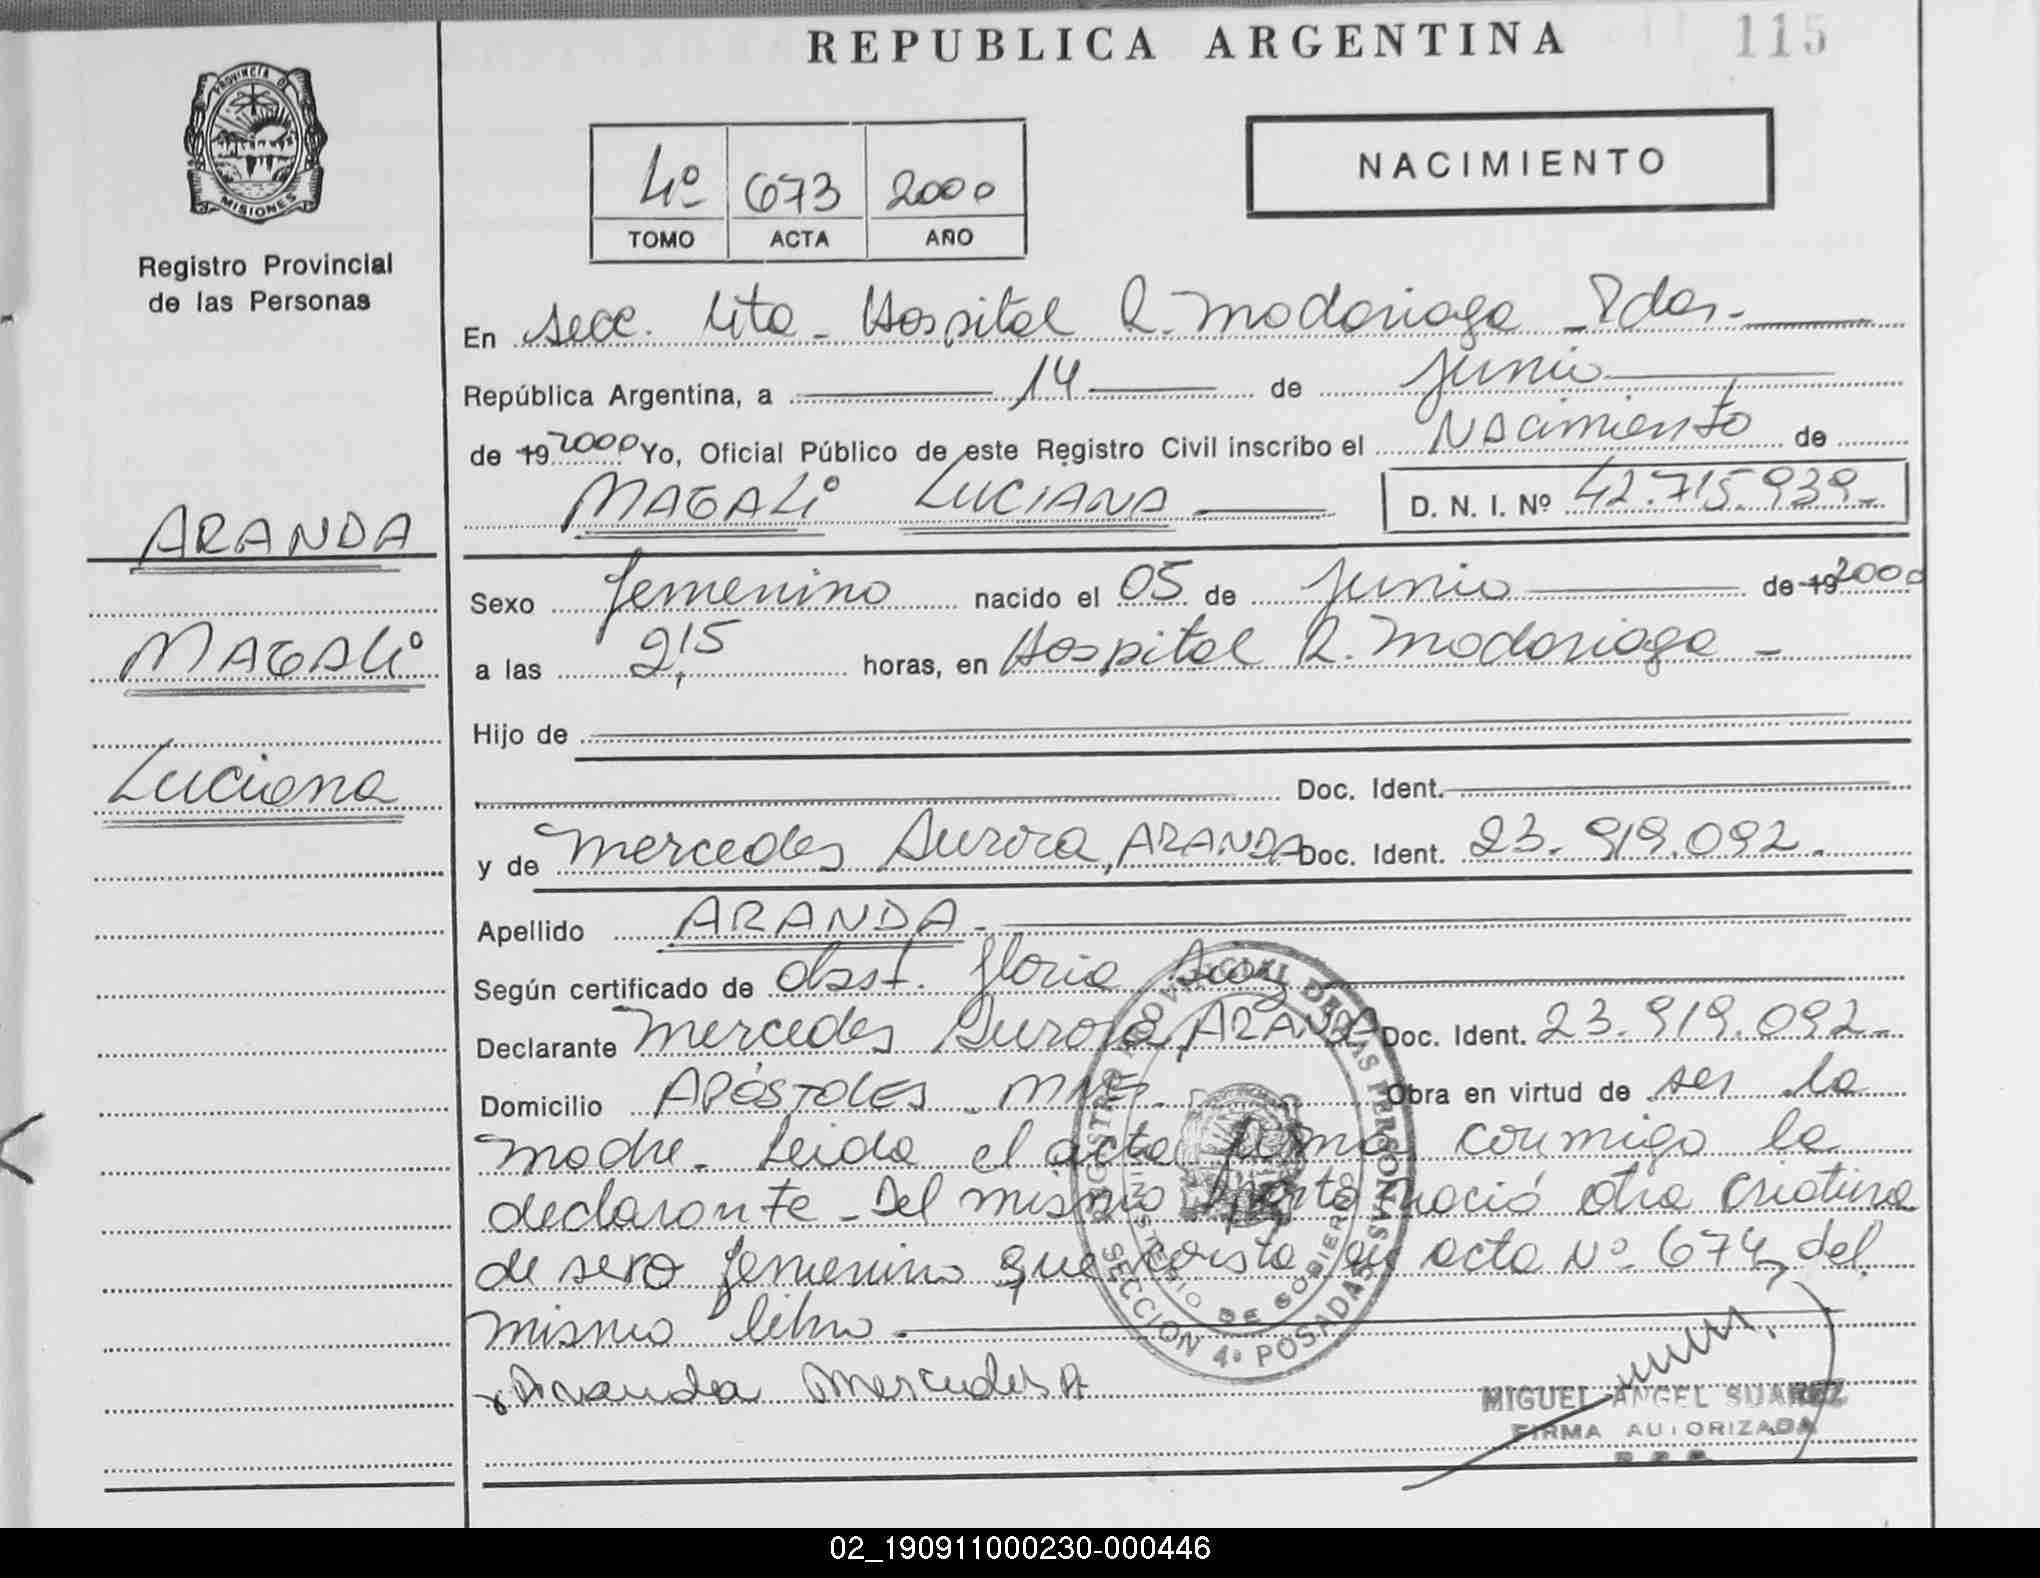 REPUBLICA ARGENTINA
115
PROVINCIA D
MISIONES
Registro Provincial
de las Personas
4º 673 2000
TOMO ACTA AÑO
NACIMIENTO
En Secc. 4ta - Hospital R. Madariaga - Pdas.-
República Argentina, a 14 de Junio
de 19 2000 Yo, Oficial Público de este Registro Civil inscribo el Nacimiento de
MAGALi LUCIANA D. N. I. Nº 42.715.939.-
ARANDA
MAGALi
Luciana
Sexo femenino nacido el 05 de Junio de 19 2000
a las 2,15 horas, en Hospital R. Madariaga -
Hijo de
Doc. Ident.
y de Mercedes Aurora, ARANDA Doc. Ident. 23.919.092.
Apellido ARANDA.-
Según certificado de obst. Gloria
Declarante Mercedes Aurora, ARANDA Doc. Ident. 23.919.092.-
Domicilio APÓSTOLES - MNES. Obra en virtud de ser la
madre.- Leida el acta firma conmigo la
declarante - Del mismo parto nació otra criatura
de sexo femenino que consta en acta Nº 674, del
mismo libro.-
Aranda Mercedes A
REGISTRO PROVINCIAL DE LAS PERSONAS
MINISTERIO DE GOBIERNO
SECCION 4ª POSADAS
MIGUEL ANGEL SUAREZ
FIRMA AUTORIZADA
R. P. P.
02_190911000230-000446